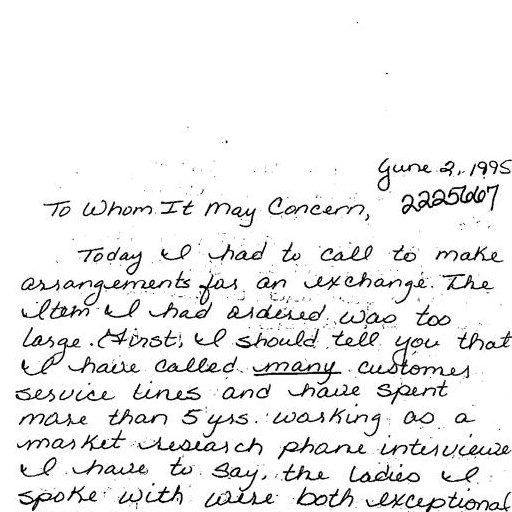 June 2, 1995
2225667
To Whom It May Concern,
Today I had to call to make
arrangements for an exchange. The
item I had ordered was too
large. First, I should tell you that
I have called many customer
service lines and have spent
more than 5 yrs. working as a
market research phone interviewe
I have to say, the ladies I
spoke with were both exceptional